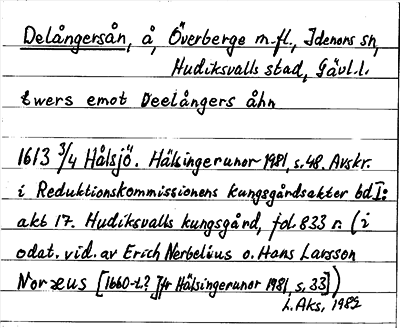 Delångersån, å, Överberge m.fl., Idenors sn,
Hudiksvalls stad, Gävl.l.
twers emot Deelångers åhn
1613 3/4 Hålsjö. Hälsingerunor 1981, s.48. Avskr.
i Reduktionskommissionens kungsgårdsakter bd I:
akt 17. Hudiksvalls kungsgård, fol. 833 r. (i
odat. vid. av Erich Nerbelius o. Hans Larsson
Noræus [1660-t.? Jfr Hälsingerunor 1981, s. 33])
L. Aks, 1982